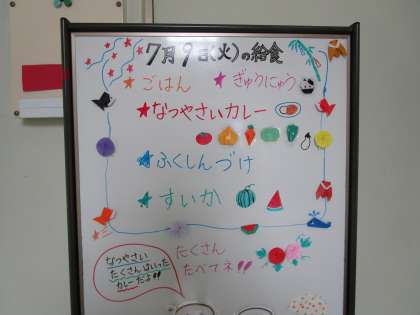 7月9日(火)の給食
★ごはん ★ぎゅうにゅう
★なつやさいカレー
★ふくしんづけ
★すいか
なつやさい
たくさんはいった
カレーだよ!!
たくさん
たべてネ!!